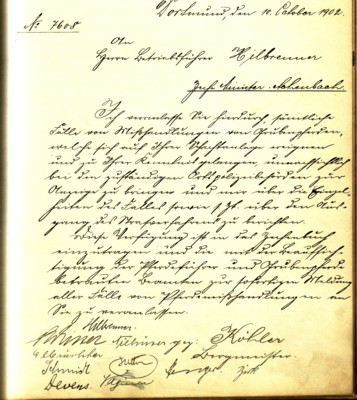 Dortmund, den 10. October 1902.
No. 7608
An
Herrn Betriebsführer Hilbrenner
Zeche Minister Achenbach
Ich veranlasse Sie hierdurch, sämtliche
Fälle von Mißhandlungen von Grubenpferden,
welche sich auf Ihrer Schachtanlage ereignen
und zu Ihrer Kenntnis gelangen, unnachsichtlich
bei den zuständigen Ortspolizeibehörden zur
Anzeige zu bringen und mir über die Einzel-
heiten des Falles sowie über den Aus-
gang des Strafverfahrens zu berichten.
Diese Verfügung ist in das Zechenbuch
einzutragen und die mit der Beaufsich-
tigung der Pferdeführer und Grubenpferde
betrauten Beamten zur sofortigen Meldung
aller Fälle von Pferdemißhandlungen an
Sie zu veranlassen.
Hilbrenner
gez. Köhler
Bergmeister.
Schmidt
Devens